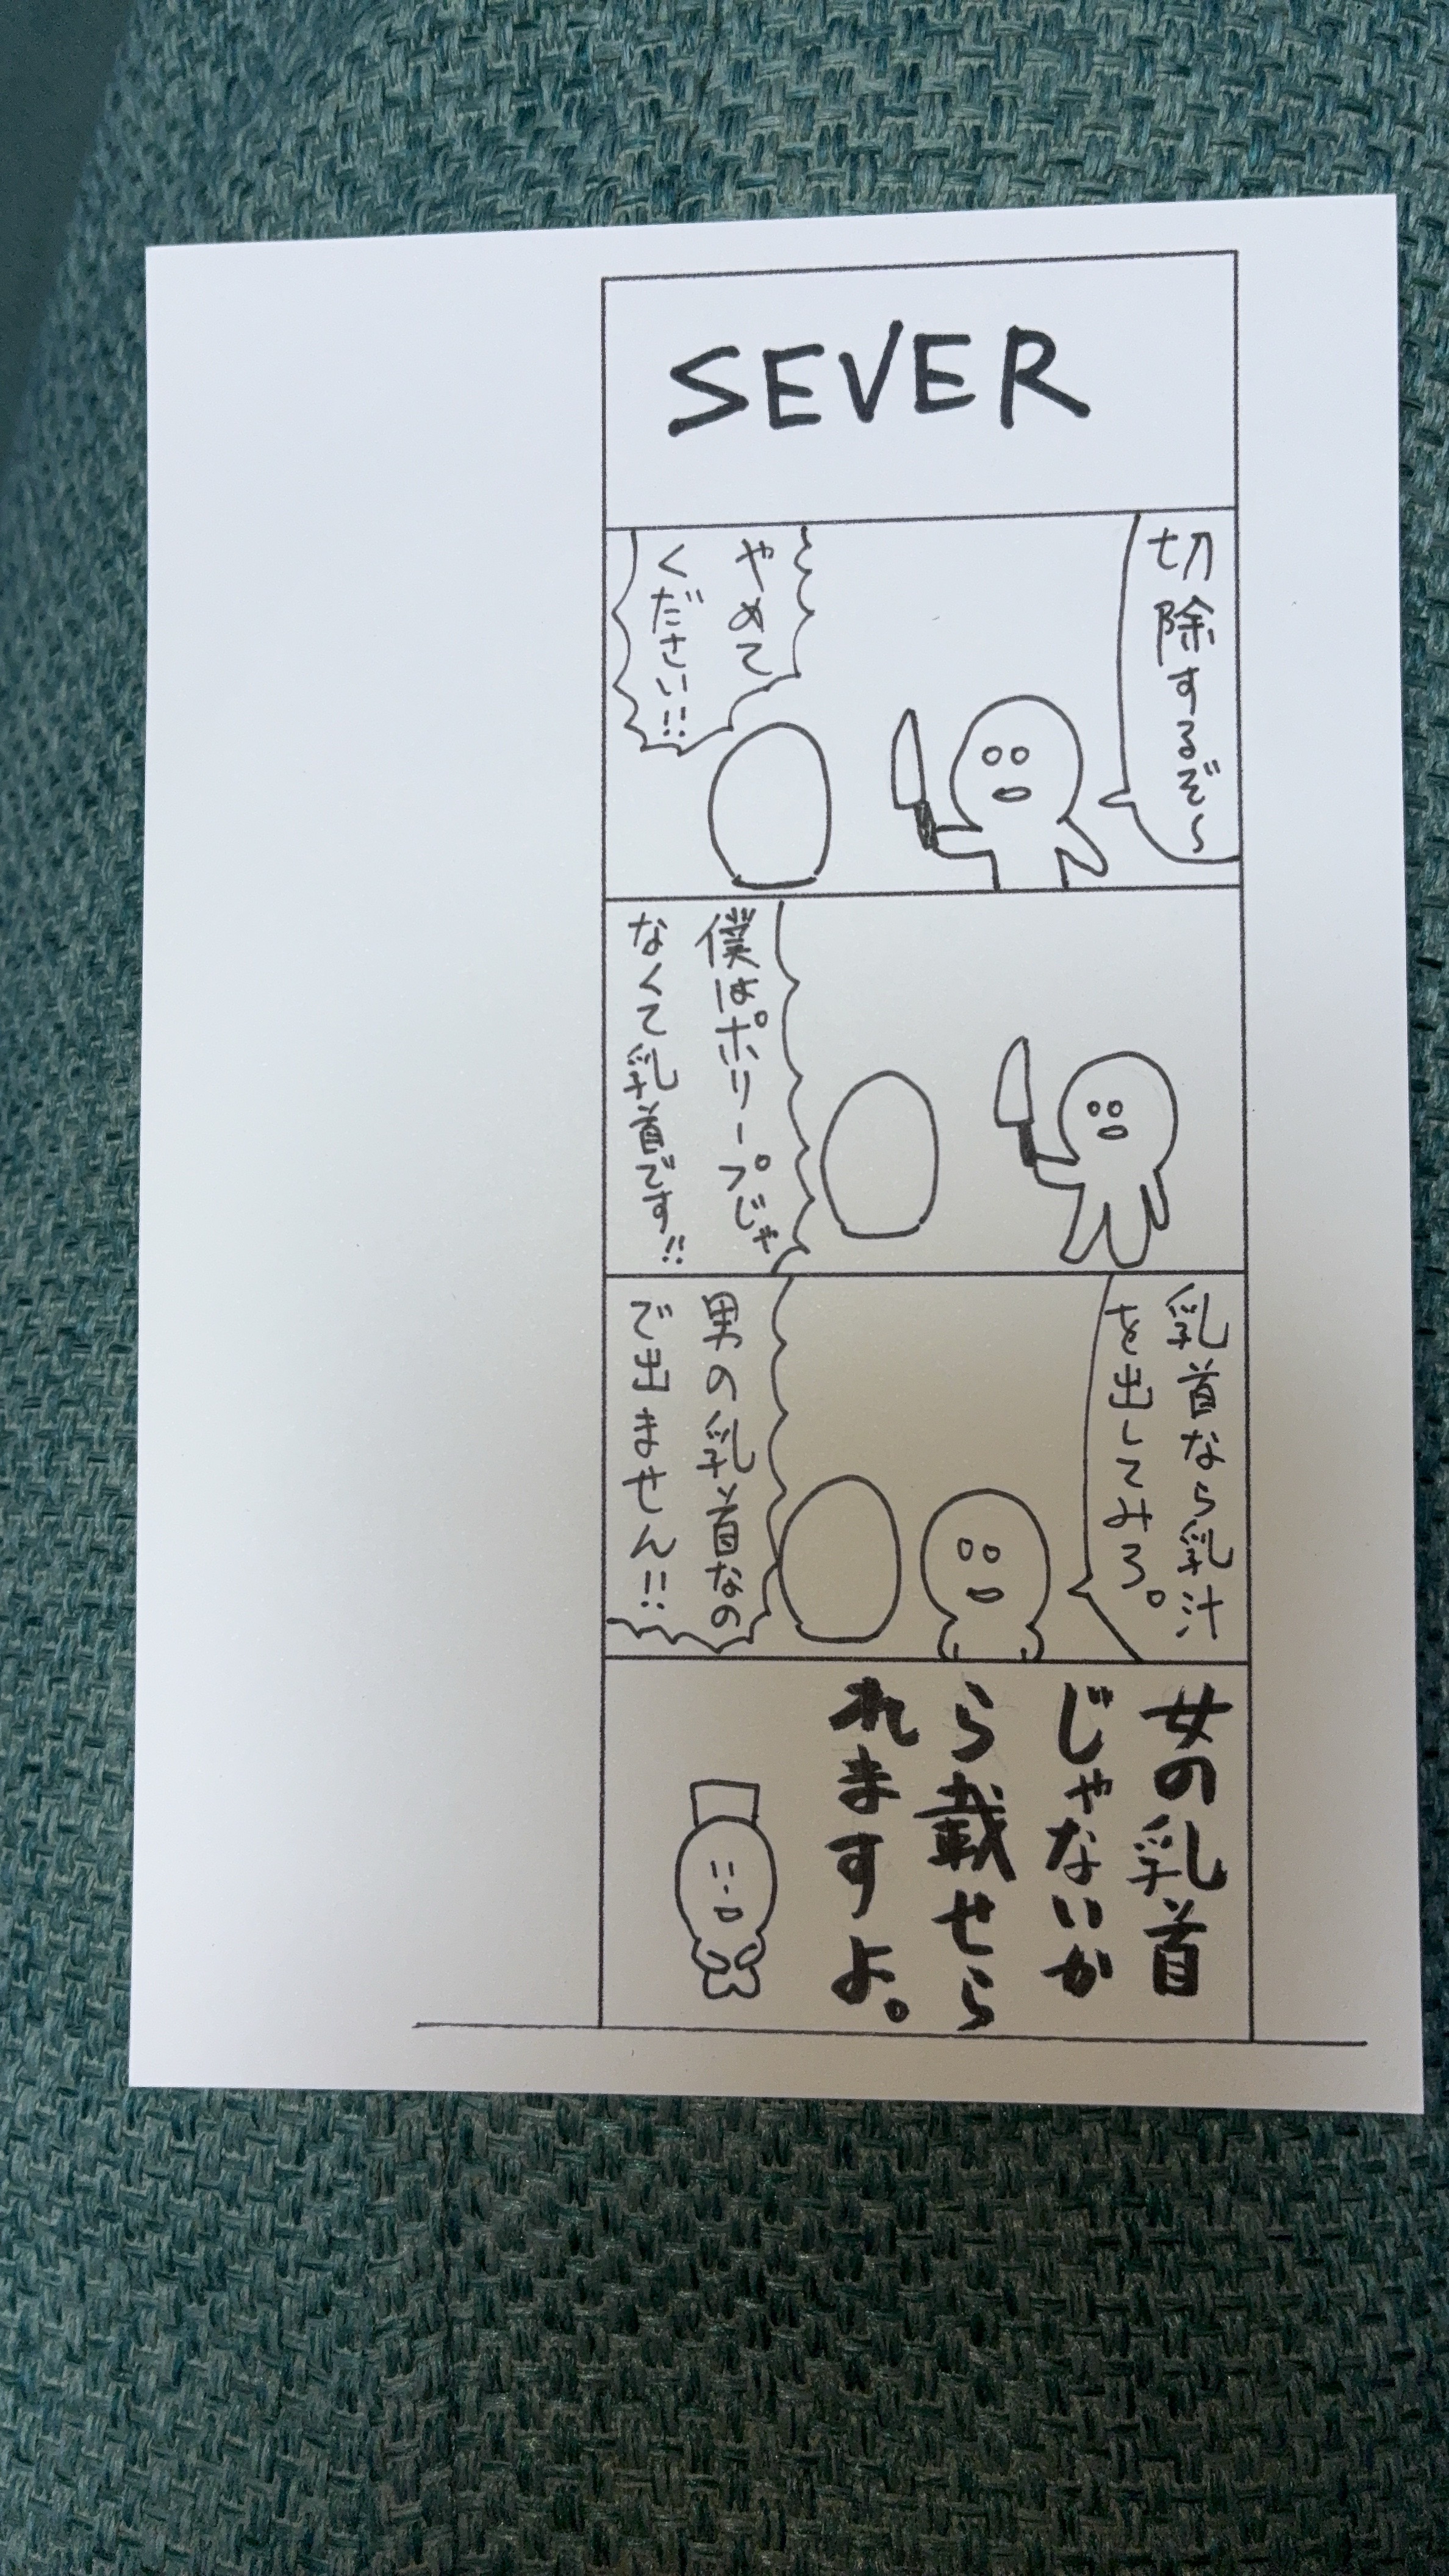 SEVER
切除するぞ〜
やめて
ください!!
僕はポリープじゃ
なくて乳首です!!
乳首なら乳汁
を出してみろ。
男の乳首なの
で出ません!!
女の乳首
じゃないか
ら載せら
れますよ。